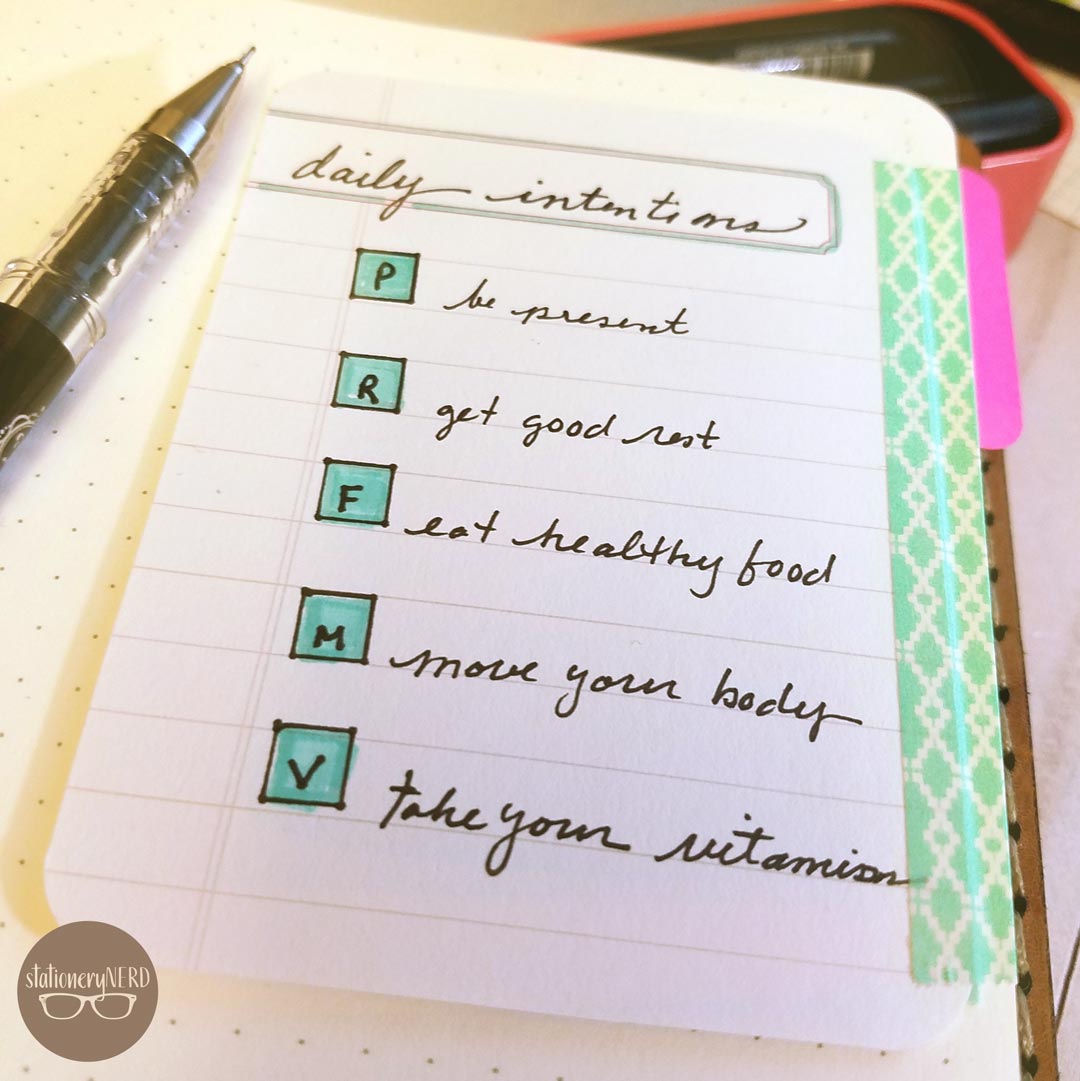 daily intentions
P be present
R get good rest
F eat healthy food
M move your body
V take your vitamins
stationeryNERD